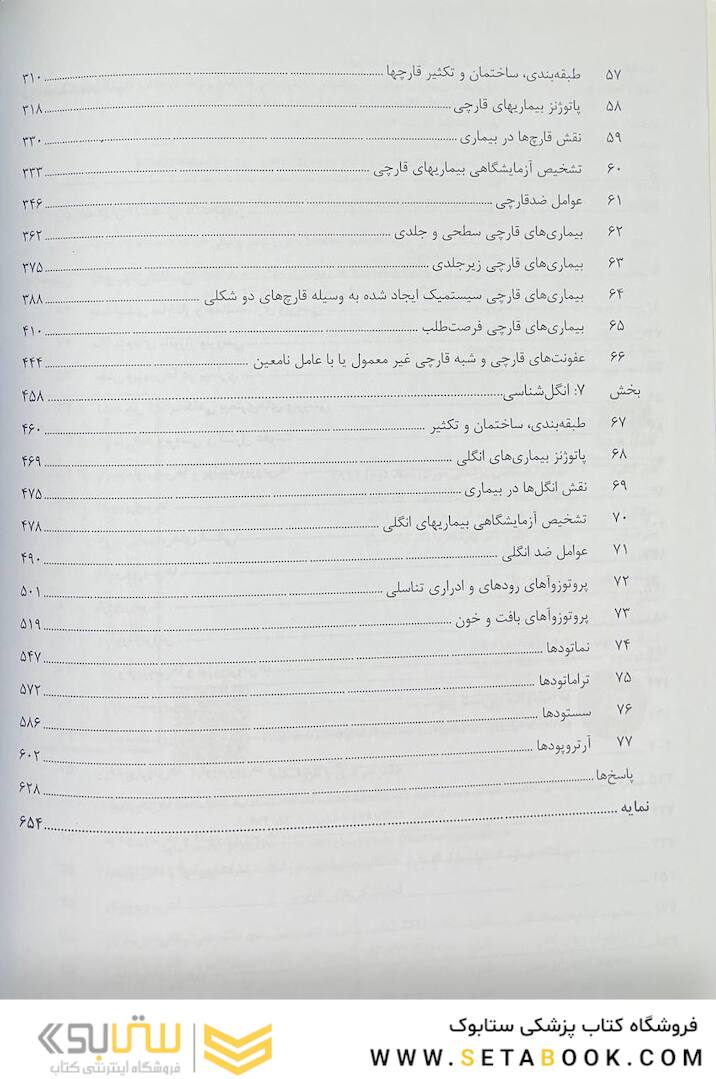 ۵۷ طبقه‌بندی، ساختمان و تکثیر قارچها ۳۱۰
۵۸ پاتوژنز بیماریهای قارچی ۳۱۸
۵۹ نقش قارچ‌ها در بیماری ۳۳۰
۶۰ تشخیص آزمایشگاهی بیماریهای قارچی ۳۳۳
۶۱ عوامل ضدقارچی ۳۴۶
۶۲ بیماری‌های قارچی سطحی و جلدی ۳۶۲
۶۳ بیماری‌های قارچی زیرجلدی ۳۷۵
۶۴ بیماری‌های قارچی سیستمیک ایجاد شده به وسیله قارچ‌های دو شکلی ۳۸۸
۶۵ بیماری‌های قارچی فرصت‌طلب ۴۱۰
۶۶ عفونت‌های قارچی و شبه قارچی غیر معمول یا با عامل نامعین ۴۴۴
بخش ۷: انگل‌شناسی ۴۵۸
۶۷ طبقه‌بندی، ساختمان و تکثیر ۴۶۰
۶۸ پاتوژنز بیماری‌های انگلی ۴۶۹
۶۹ نقش انگل‌ها در بیماری ۴۷۵
۷۰ تشخیص آزمایشگاهی بیماریهای انگلی ۴۷۸
۷۱ عوامل ضد انگلی ۴۹۰
۷۲ پروتوزوآهای رودهای و ادراری تناسلی ۵۰۱
۷۳ پروتوزوآهای بافت و خون ۵۱۹
۷۴ نماتودها ۵۴۷
۷۵ تراماتودها ۵۷۲
۷۶ سستودها ۵۸۶
۷۷ آرتروپودها ۶۰۲
پاسخ‌ها ۶۲۸
نمایه ۶۵۴
فروشگاه کتاب پزشکی ستابوک
WWW.SETABOOK.COM
ستابوک
فروشگاه اینترنتی کتاب